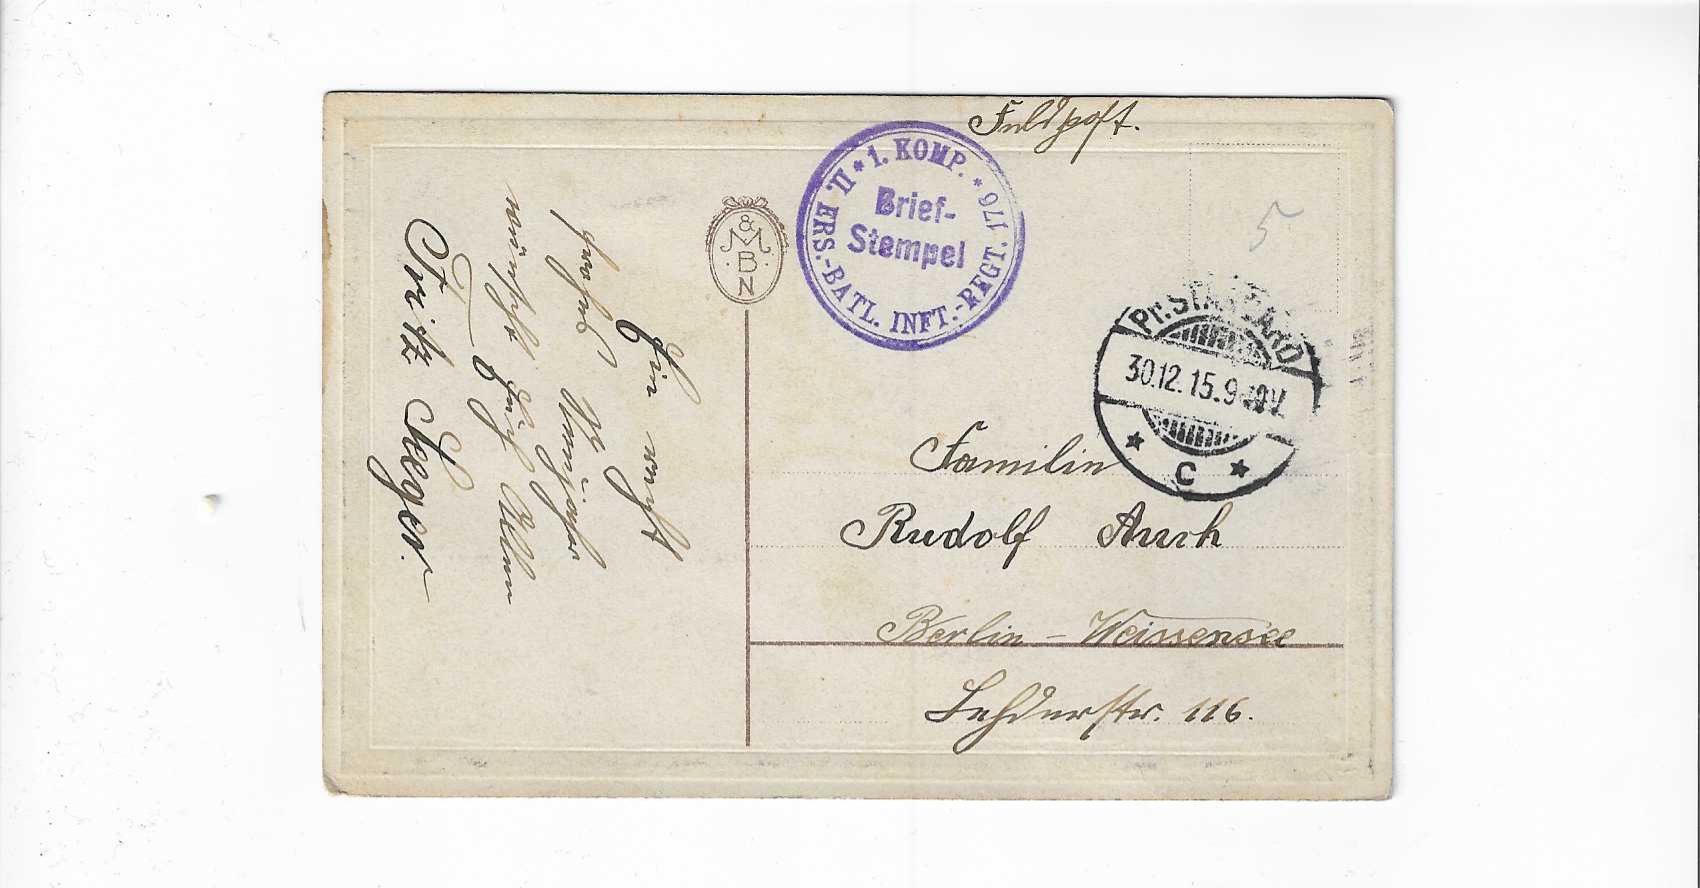 Feldpost.
II. ERS.-BATL. INFT.-REGT. 176 * 1. KOMP. *
Brief-
Stempel
5
Pr. STARGARD
30.12.15. 9-10V.
* C *
& M B N
Familie
Rudolf Auch
Berlin - Weissensee
Lehderstr. 116.
Ein recht
frohes Neujahr
wünscht Euch Allen
Fritz Seeger.